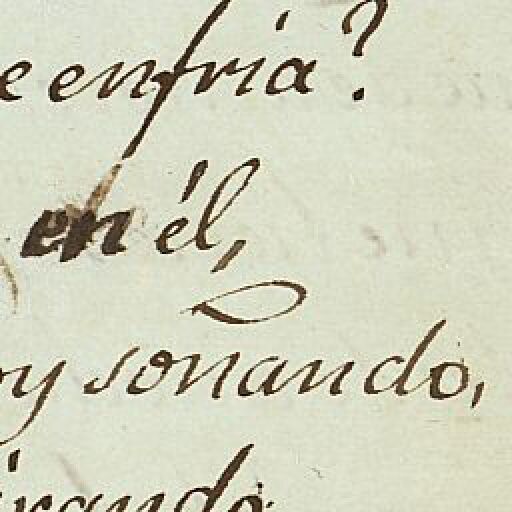 e enfría?
en él,
oy soñando,
irando